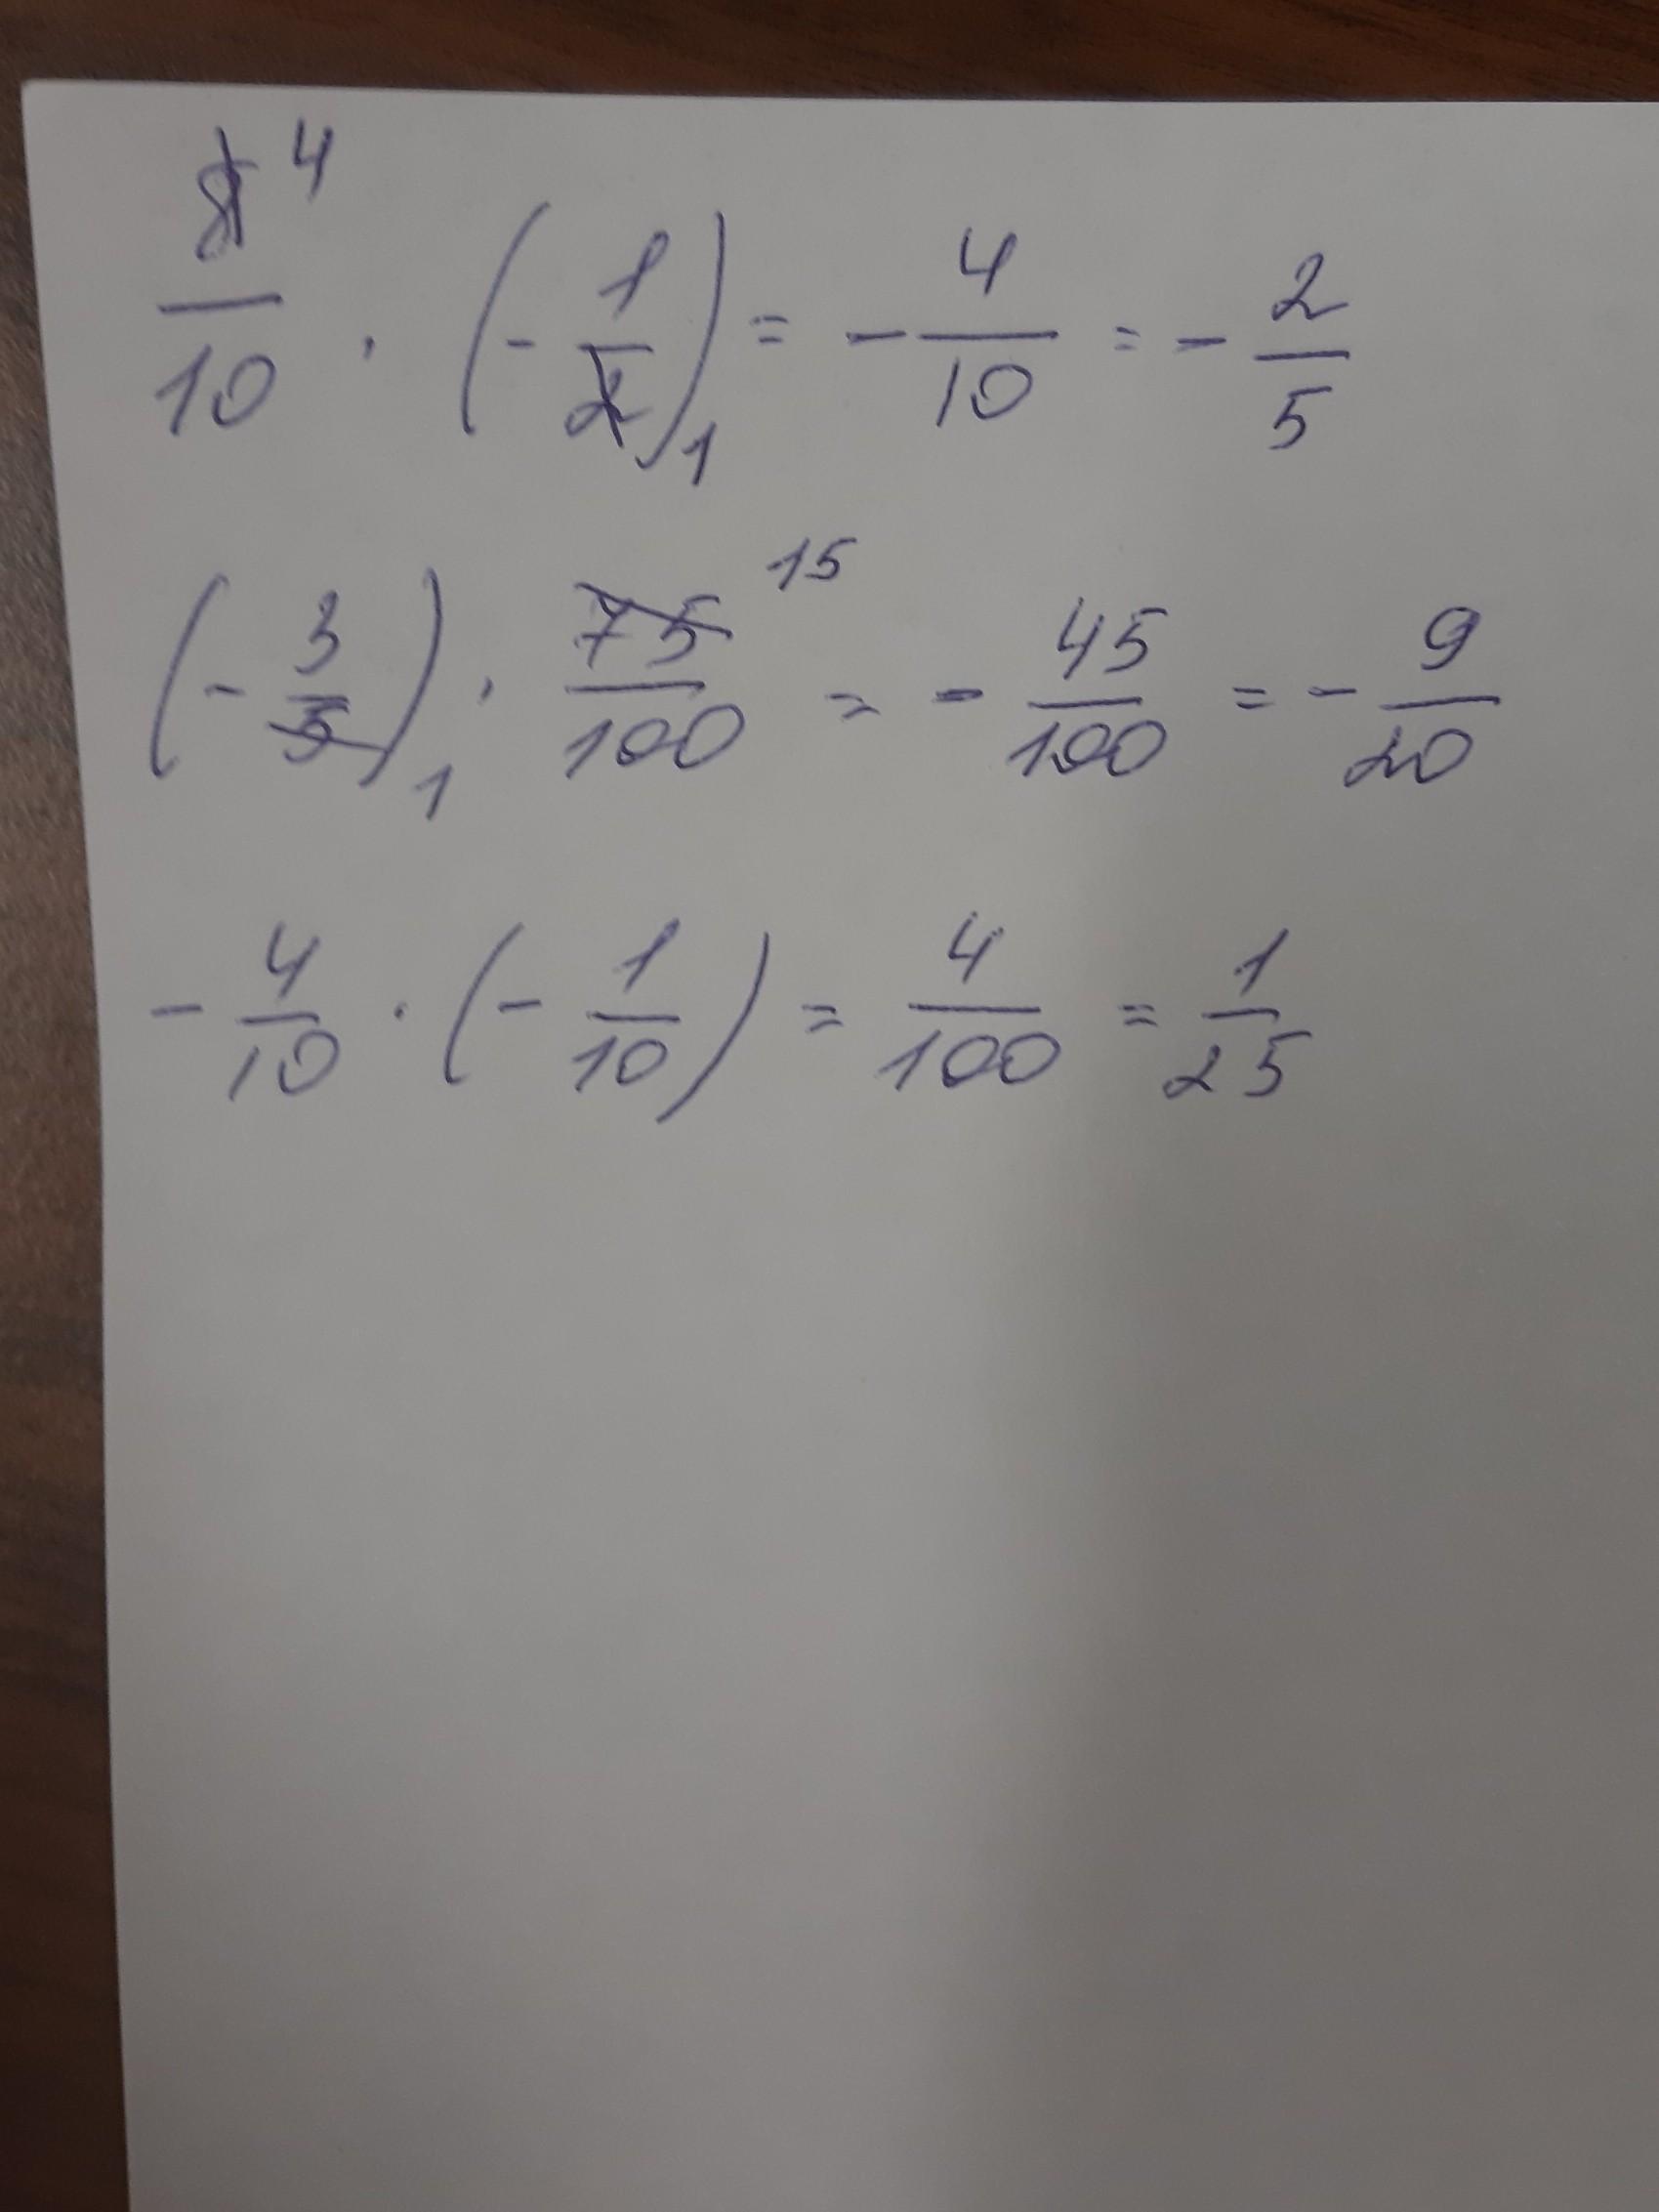 8 4/10 · (- 1/2)1 = - 4/10 = - 2/5
(- 3/5)1 · 75 15/100 = - 45/100 = - 9/20
- 4/10 · (- 1/10) = 4/100 = 1/25